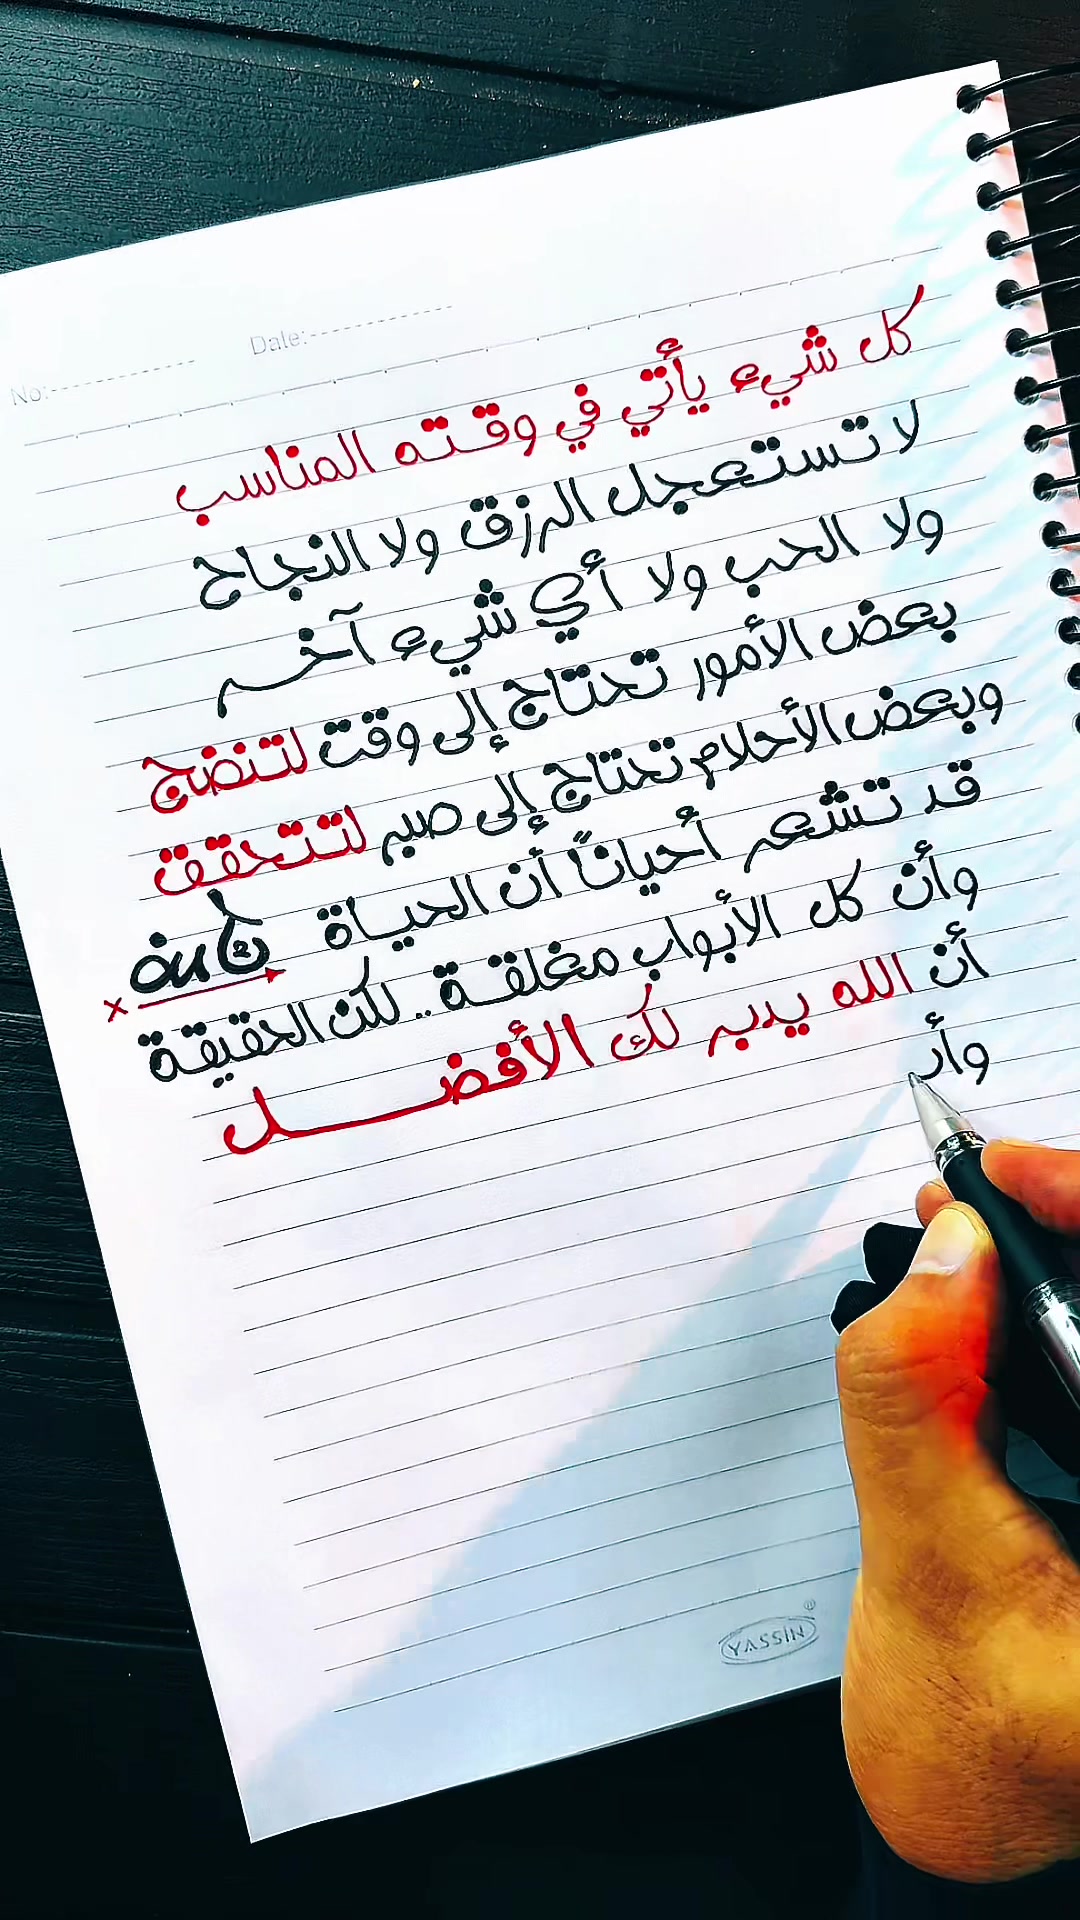 No:
Date:
كل شيء يأتي في وقته المناسب
لا تستعجل الرزق ولا النجاح
ولا الحب ولا أي شيء آخر
بعض الأمور تحتاج إلى وقت لتنضج
وبعض الأحلام تحتاج إلى صبر لتتحقق
قد تشعر أحياناً أن الحياة
وأن كل الأبواب مغلقة.. لكن الحقيقة
أن الله يدبر لك الأفضل
YASSIN